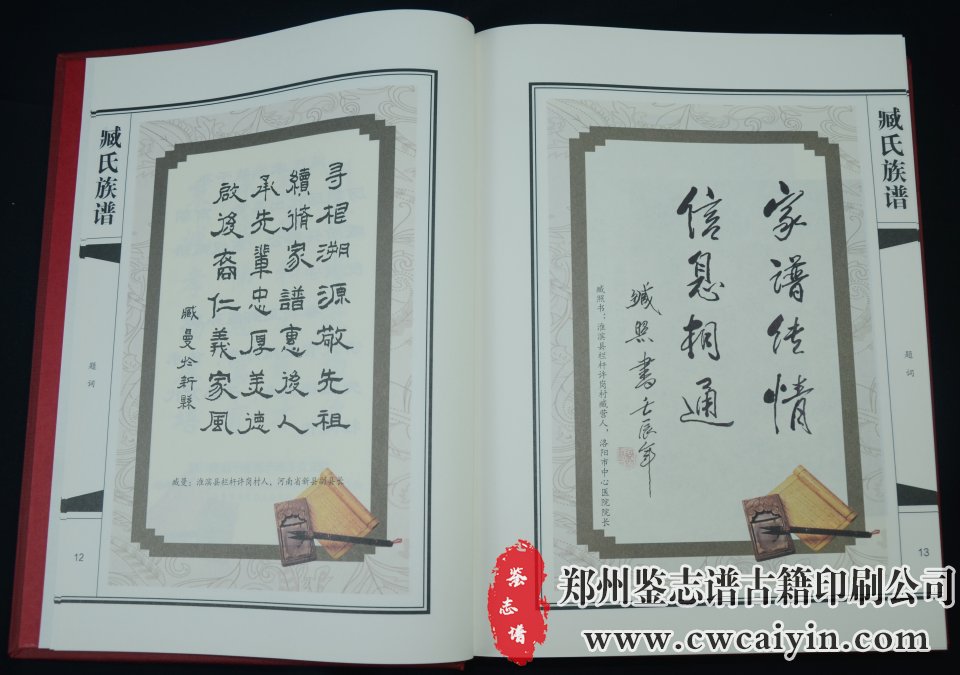 臧氏族谱
题词
12
寻根溯源敬先祖
續脩家譜惠後人
承先輩忠厚美德
啟後裔仁義家風
臧曼於新縣
臧曼：淮滨县栏杆许岗村人，河南省新县副县长
臧氏族谱
题词
13
家谱传情
信息相通
臧照書壬辰年
臧照书：淮滨县栏杆许岗村臧营人，洛阳市中心医院院长
鉴志谱
郑州鉴志谱古籍印刷公司
www.cwcaiyin.com